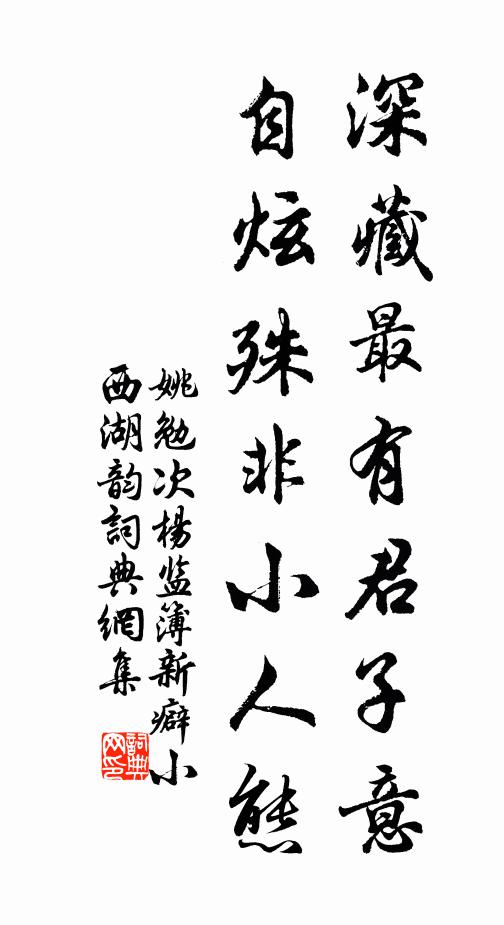 深藏最有君子意
自炫殊非小人態
姚勉次楊監簿新癖小
西湖韵詞典網集
詞典
网印